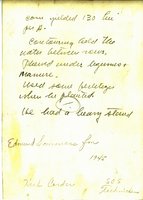 corn yielded 130 bu
per A.
Contouring held the
water between rows.
Plowed under legumes &
manure.
Used some fertilizer
when he planted
He had a heavy stand
Edward Lammers farm
1945